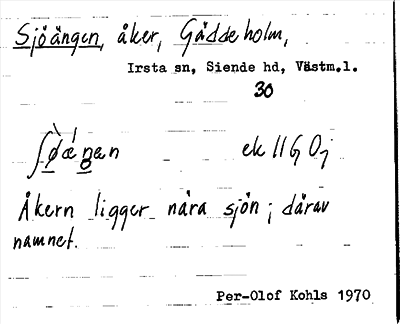 Sjöängen, åker, Gäddeholm,
Irsta sn, Siende hd, Västm.l.
30
ek 11 G Oj
Åkern ligger nära sjön; därav
namnet.
Per-Olof Kohls 1970